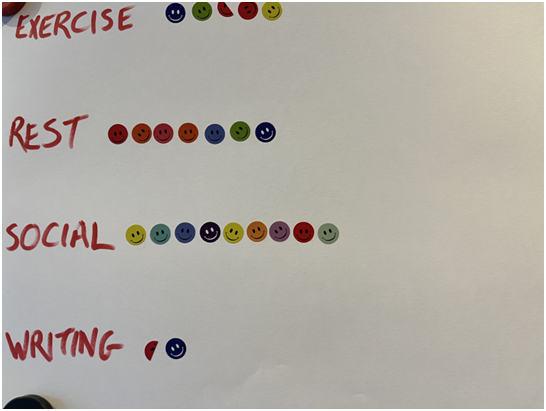 EXERCISE
REST
SOCIAL
WRITING